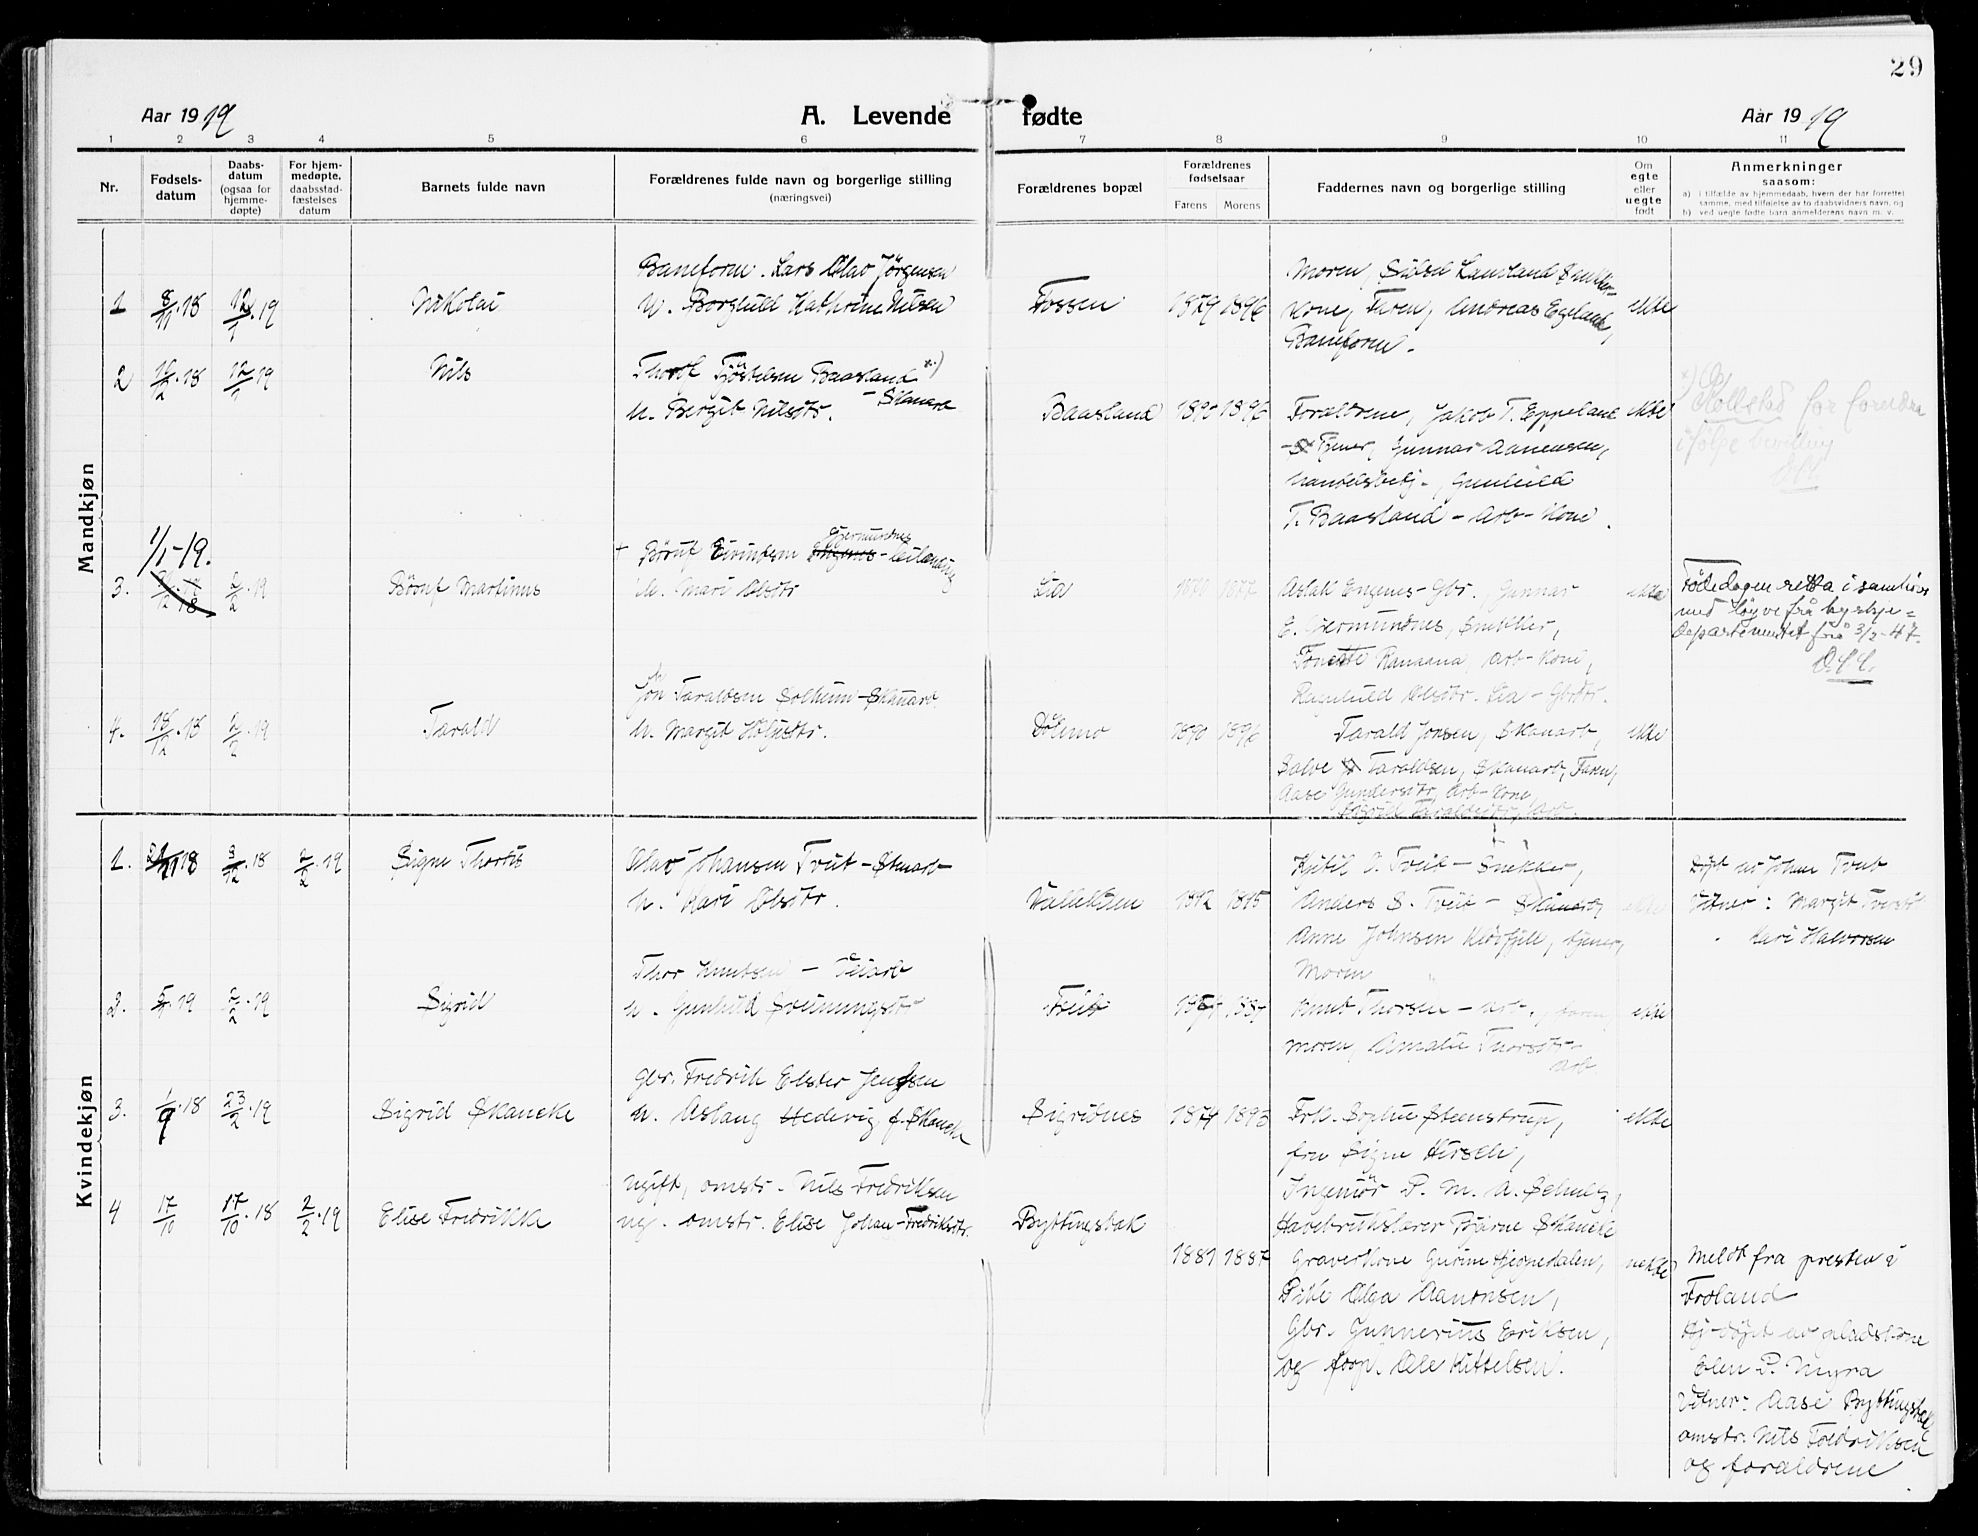 29
Aar 1919
A. Levende fødte
Aar 1919
1 2 3 4 5 6 7 8 9 10 11
Nr.
Fødsels-
datum
Daabs-
datum
(ogsaa for
hjemme-
døpte)
For hjem-
medøpte,
daabsstad-
fæstelses
datum
Barnets fulde navn
Forældrenes fulde navn og borgerlige stilling
(næringsvei)
Forældrenes bopæl
Forældrenes
fødselsaar
Farens Morens
Faddernes navn og borgerlige stilling
Om
egte
eller
uegte
født
Anmerkninger
saasom:
a) i tilfælde av hjemmedaab, hvem der har forrettet
samme, med tilføielse av to daabsvidners navn, og
b) ved uegte fødte barn anmelderens navn m. v.
Mandkjøn
1 8/11.18 12/1.19 Nikolai
Baneform. Lars Olav Jørgensen
h. Borghild Kathrine Nilsen
Fossen 1879 1896
Moren, Sixsel Lausland Snikker-
kone, Faren, Andreas Egeland,
Baneform.
ekte
2 12/12.18 12/1.19 Nils
Thorlf Tjøstelsen Baasland x)
h. Bergit Nilsdtr. - Skauarb
Baasland 1895 1896
Forældrene, Jakob T. Eppeland
- Tjener, Gunnar Aanensen,
handelsbetj., Gunhild
T. Baasland - Arb-kone.
ekte
x) Rollstad for foreldra
ifølge bevilling
1/1-19.
3. 2/2.19 Børuf Martinus
+ Børuf Eivindsen Gjermundnes - leilending
h. Mari Olsdtr
Lia 1870 1877
Aslak Engenes - Gbr., Gunnar
E. Gjermundnes, Snikker,
Tomette Ranaana, Arb-kone,
Ragnhild Olsdtr. Lia - Gbrdtr.
ekte
Fødedagen retta i samhøve
med løyve frå kyrkje-
Departementet frå 3/2-47.
4. 18/12.18 2/2.19 Tarald
Jon Taraldsen Solheim - Skauarb.
h. Margit Holjesdtr.
Dølemo 1890 1896
Tarald Jonsen, Skauarb,
Salve Taraldsen, Skauarb, Faren,
Aase Gundersdtr, Arb-kone
Sigrid Taraldsdtr, Arb.
ekte
Kvindekjøn
1. 21/11.18 3/12.18 2/2.19 Signe Thordis
Olav Johansen Tveit - Stenarb
h. Kari Olsdtr.
Valleksen 1892 1895
Kjetil O. Tveit - Snikker,
Anders S. Tveit - Skauarb,
Anne Johnsen Kleivfjell, tjener,
Moren
ekte
Døpt av Johan Tveit
Vitner: Margit Tveit
Kari Halvorsen
2. 5/1.19 2/2.19 Sigrid
Thor Knutsen - Veiarb
h. Gunhild Sveinungsdtr
Tveit 1887
Knut Thorsen - Arb., Faren,
Moren, Amalie Thorsdtr
Arb
ekte
3. 1/9.18 23/2.19 Sigrid Skancke
Gbr. Fredrik Elster Jenssen
h. Aslaug Hedevig f. Skancke
Sigridnes 1874 1893
Frk. Sophie Steenstrup,
fru Signe Hirsch,
Ingeniør P. M. A. Schultz,
Havebrukslærer Bjarne Skancke
ekte
4 17/10 17/10.18 2/2.19 Elise Fredrikke
Ugift, omstr. Nils Fredriksen
ug. omstr. Elise Johan-Fredriksdtr.
Byttingsbak
1881 1887
Graverkone Gurine Hjegnedalen,
Pike Olga Aanonsen,
Gbr. Gunnerius Eriksen,
og forp. Ole Kittelsen.
uekte
Meldt fra presten i
Froland
Hj-døpt av pladskone
Elen P. Myra
Vitner: Aase Byttingsbak
omstr. Nils Fredriksen
og forældrene